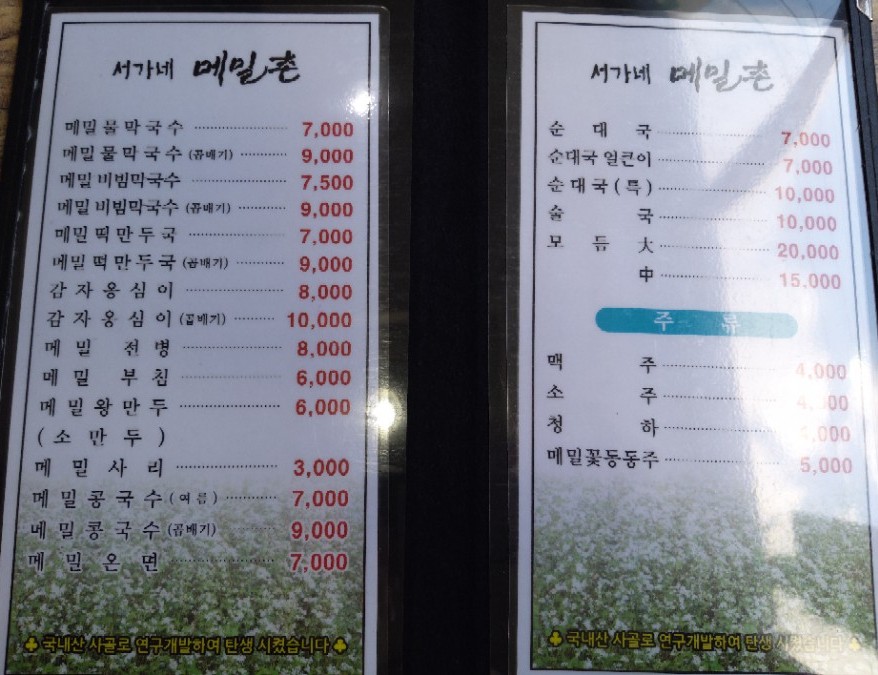 서가네 메밀촌
메밀물막국수 7,000
메밀물막국수(곱배기) 9,000
메밀비빔막국수 7,500
메밀비빔막국수(곱배기) 9,000
메밀떡만두국 7,000
메밀떡만두국(곱배기) 9,000
감자옹심이 8,000
감자옹심이(곱배기) 10,000
메밀전병 8,000
메밀부침 6,000
메밀왕만두 6,000
(소만두)
메밀사리 3,000
메밀콩국수(여름) 7,000
메밀콩국수(곱배기) 9,000
메밀온면 7,000
♣ 국내산 사골로 연구개발하여 탄생 시켰습니다 ♣
서가네 메밀촌
순대국 7,000
순대국얼큰이 7,000
순대국(특) 10,000
술국 10,000
모듬 大 20,000
中 15.000
주류
맥주 4,000
소주
청하
메밀꽃동동주 5,000
♣ 국내산 사골로 연구개발하여 탄생 시켰습니다 ♣